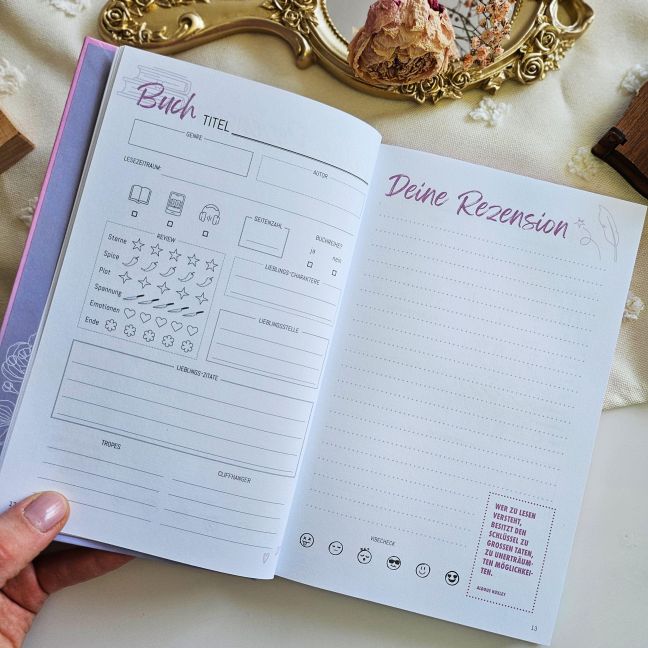 Buch TITEL
GENRE
AUTOR
LESEZEITRAUM:
SEITENZAHL
BUCHREIHE?
ja nein
REVIEW
Sterne
Spice
Plot
Spannung
Emotionen
Ende
LIEBLINGS-CHARAKTERE
LIEBLINGSSTELLE
LIEBLINGS-ZITATE
TROPES
CLIFFHANGER
Deine Rezension
VIBECHECK
WER ZU LESEN
VERSTEHT,
BESITZT DEN
SCHLÜSSEL ZU
GROSSEN TATEN,
ZU UNERTRÄUM-
TEN MÖGLICHKEI-
TEN.
ALDOUS HUXLEY
13